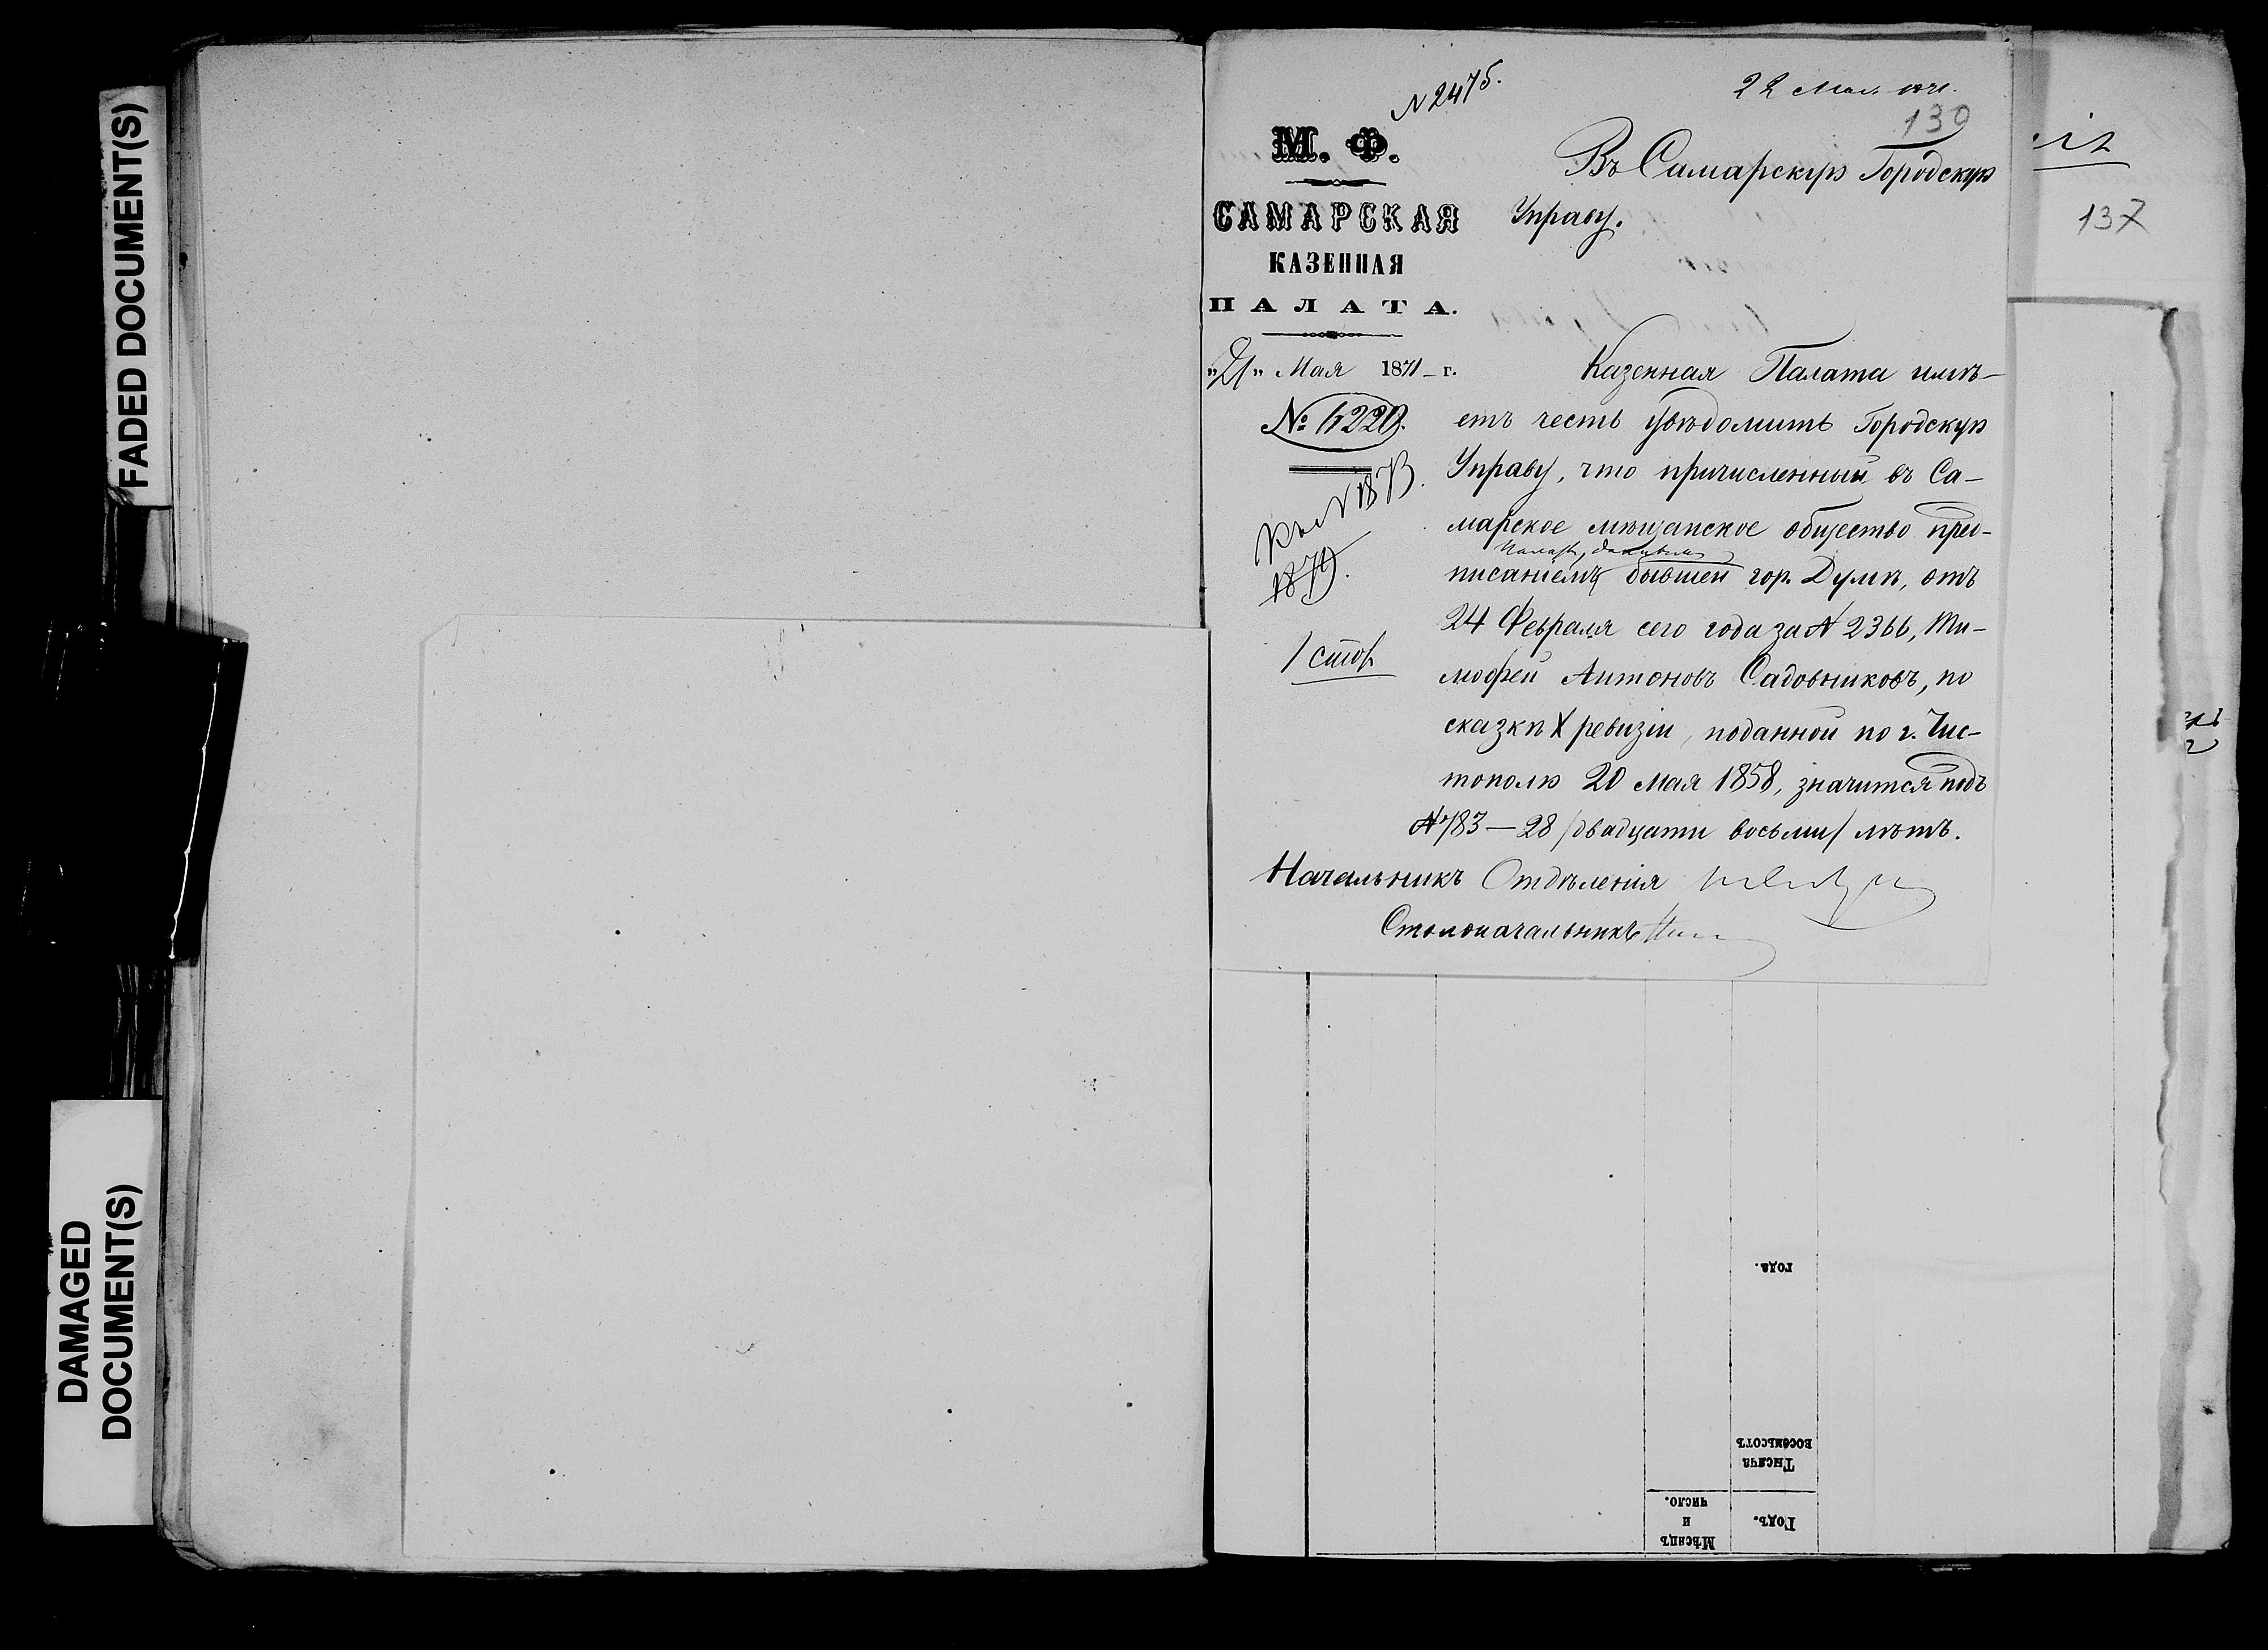 FADED DOCUMENT(S)
DAMAGED
DOCUMENT(S)
N 2475.
22 Мая 1871.
130
137
М. Ф.
САМАРСКАЯ
КАЗЕННАЯ
ПАЛАТА.
„21" Мая 1871 г.
№ 4220.
1 стол
Въ Самарскую Городскую
Управу.
Казенная Палата имѣ-
етъ честь увѣдомить Городскую
Управу, что причисленный въ Са-
марское мѣщанское общество пред-
писаніемъ Палаты, даннымъ бывшей гор. Думѣ, отъ
24 Февраля сего года за N 2366, Ти-
мофей Антоновъ Садовниковъ, по
сказкѣ X ревизіи, поданной по г. Чис-
тополю 20 мая 1858, значится подъ
N 783 — 28 /двадцати восьми/ лѣтъ.
Начальникъ Отдѣленія
Столоначальникъ
года.
Тысяча
восемьсотъ
Годъ.
Мѣсяцъ
и
число.